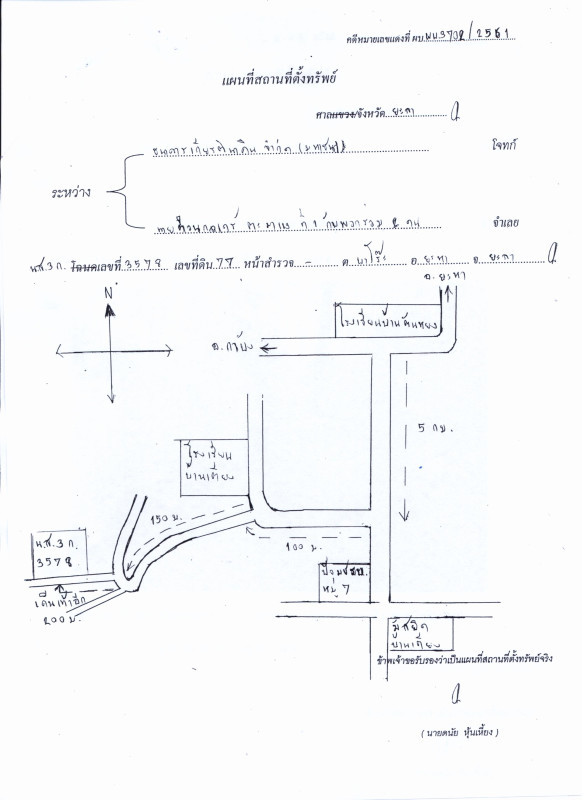 คดีหมายเลขแดงที่ ผบ.พบ3702/2561
แผนที่สถานที่ตั้งทรัพย์
ศาลแขวง/จังหวัด ยะลา
ธนาคารเกียรตินาคิน จำกัด (มหาชน)
โจทก์
ระหว่าง
ที่ 1 กับพวกรวม 2 คน
จำเลย
น.ส.3 ก. โฉนดเลขที่ 3578 เลขที่ดิน 77 หน้าสำรวจ - ต. บาโร๊ะ อ. ยะหา จ. ยะลา
อ. ยะหา
N
โรงเรียนบ้าน
อ. กาบัง
5 กม.
โรงเรียน
บ้านเตียง
150 ม.
100 ม.
น.ส.3 ก.
3578
เดินเท้าอีก
200 ม.
ป้อม ชรบ.
หมู่ 7
มัสยิด
บ้านเตียง
ข้าพเจ้าขอรับรองว่าเป็นแผนที่สถานที่ตั้งทรัพย์จริง
( นายดนัย หุ้นเหี้ยง )